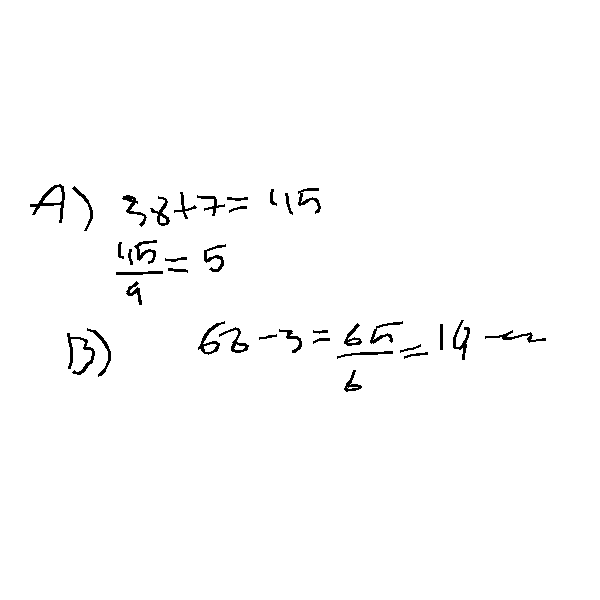 A) 38+7= 45
45/9 = 5
B) 68-3 = 65/6 = 19